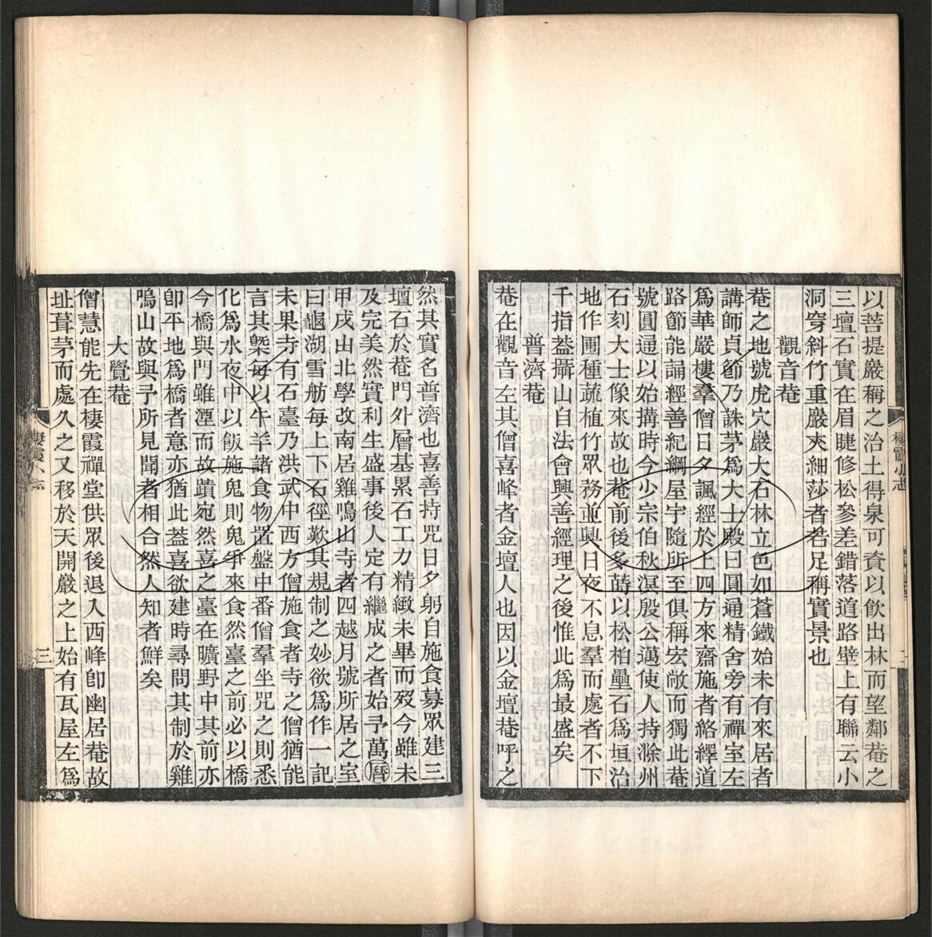 以菩提嚴稱之治土得泉可資以飲出林而望鄰菴之
三壇石實在眉睫修松參差錯落道路壁上有聯云小
洞穿斜竹重嚴夾細莎者者足稱實景也
觀音菴
菴之地號虎穴嚴大石林立色如蒼鐵始未有來居者
講師貞節乃誅茅為大士殿曰圓通精舍旁有禪室左
為華嚴樓羣僧日夕諷經於上四方來齋施者絡繹道
路節能誦經善紀綱屋宇隨所至俱稱宏敞而獨此菴
號圓通以始搆時今少宗伯秋溟殷公邁使人持滁州
石刻大士像來故也菴前後多蒔以松柏壘石為垣治
地作圃種蔬植竹眾務並興日夜不息羣而處者不下
千指葢攝山自法會興善經理之後惟此為最盛矣
普濟菴
菴在觀音左其僧喜峰者金壇人也因以金壇菴呼之
然其實名普濟也喜善持咒日夕躬自施食募眾建三
壇石於菴門外層基累石工力精緻未畢而歿今雖未
及完美然實利生盛事後人定有繼成之者始予萬曆
甲戌山北學改南居雞鳴山寺者四越月號所居之室
曰龜湖雪舫每上下石徑歎其規制之妙欲為作一記
未果寺有石臺乃洪武中西方僧施食者寺之僧猶能
言其槩每以牛羊諸食物置盤中番僧羣坐咒之則悉
化為水夜中以飯施鬼則鬼爭來食然臺之前必以橋
今橋與門雖湮而故蹟宛然喜之臺在曠野中其前亦
卽平地為橋者意亦猶此葢喜欲建時尋問其制於雞
鳴山故與予所見聞者相合然人知者鮮矣
大覺菴
僧慧能先在棲霞禪堂供眾後退入西峰卽幽居菴故
址葺茅而處久之又移於天開嚴之上始有瓦屋左為
棲霞小志
三